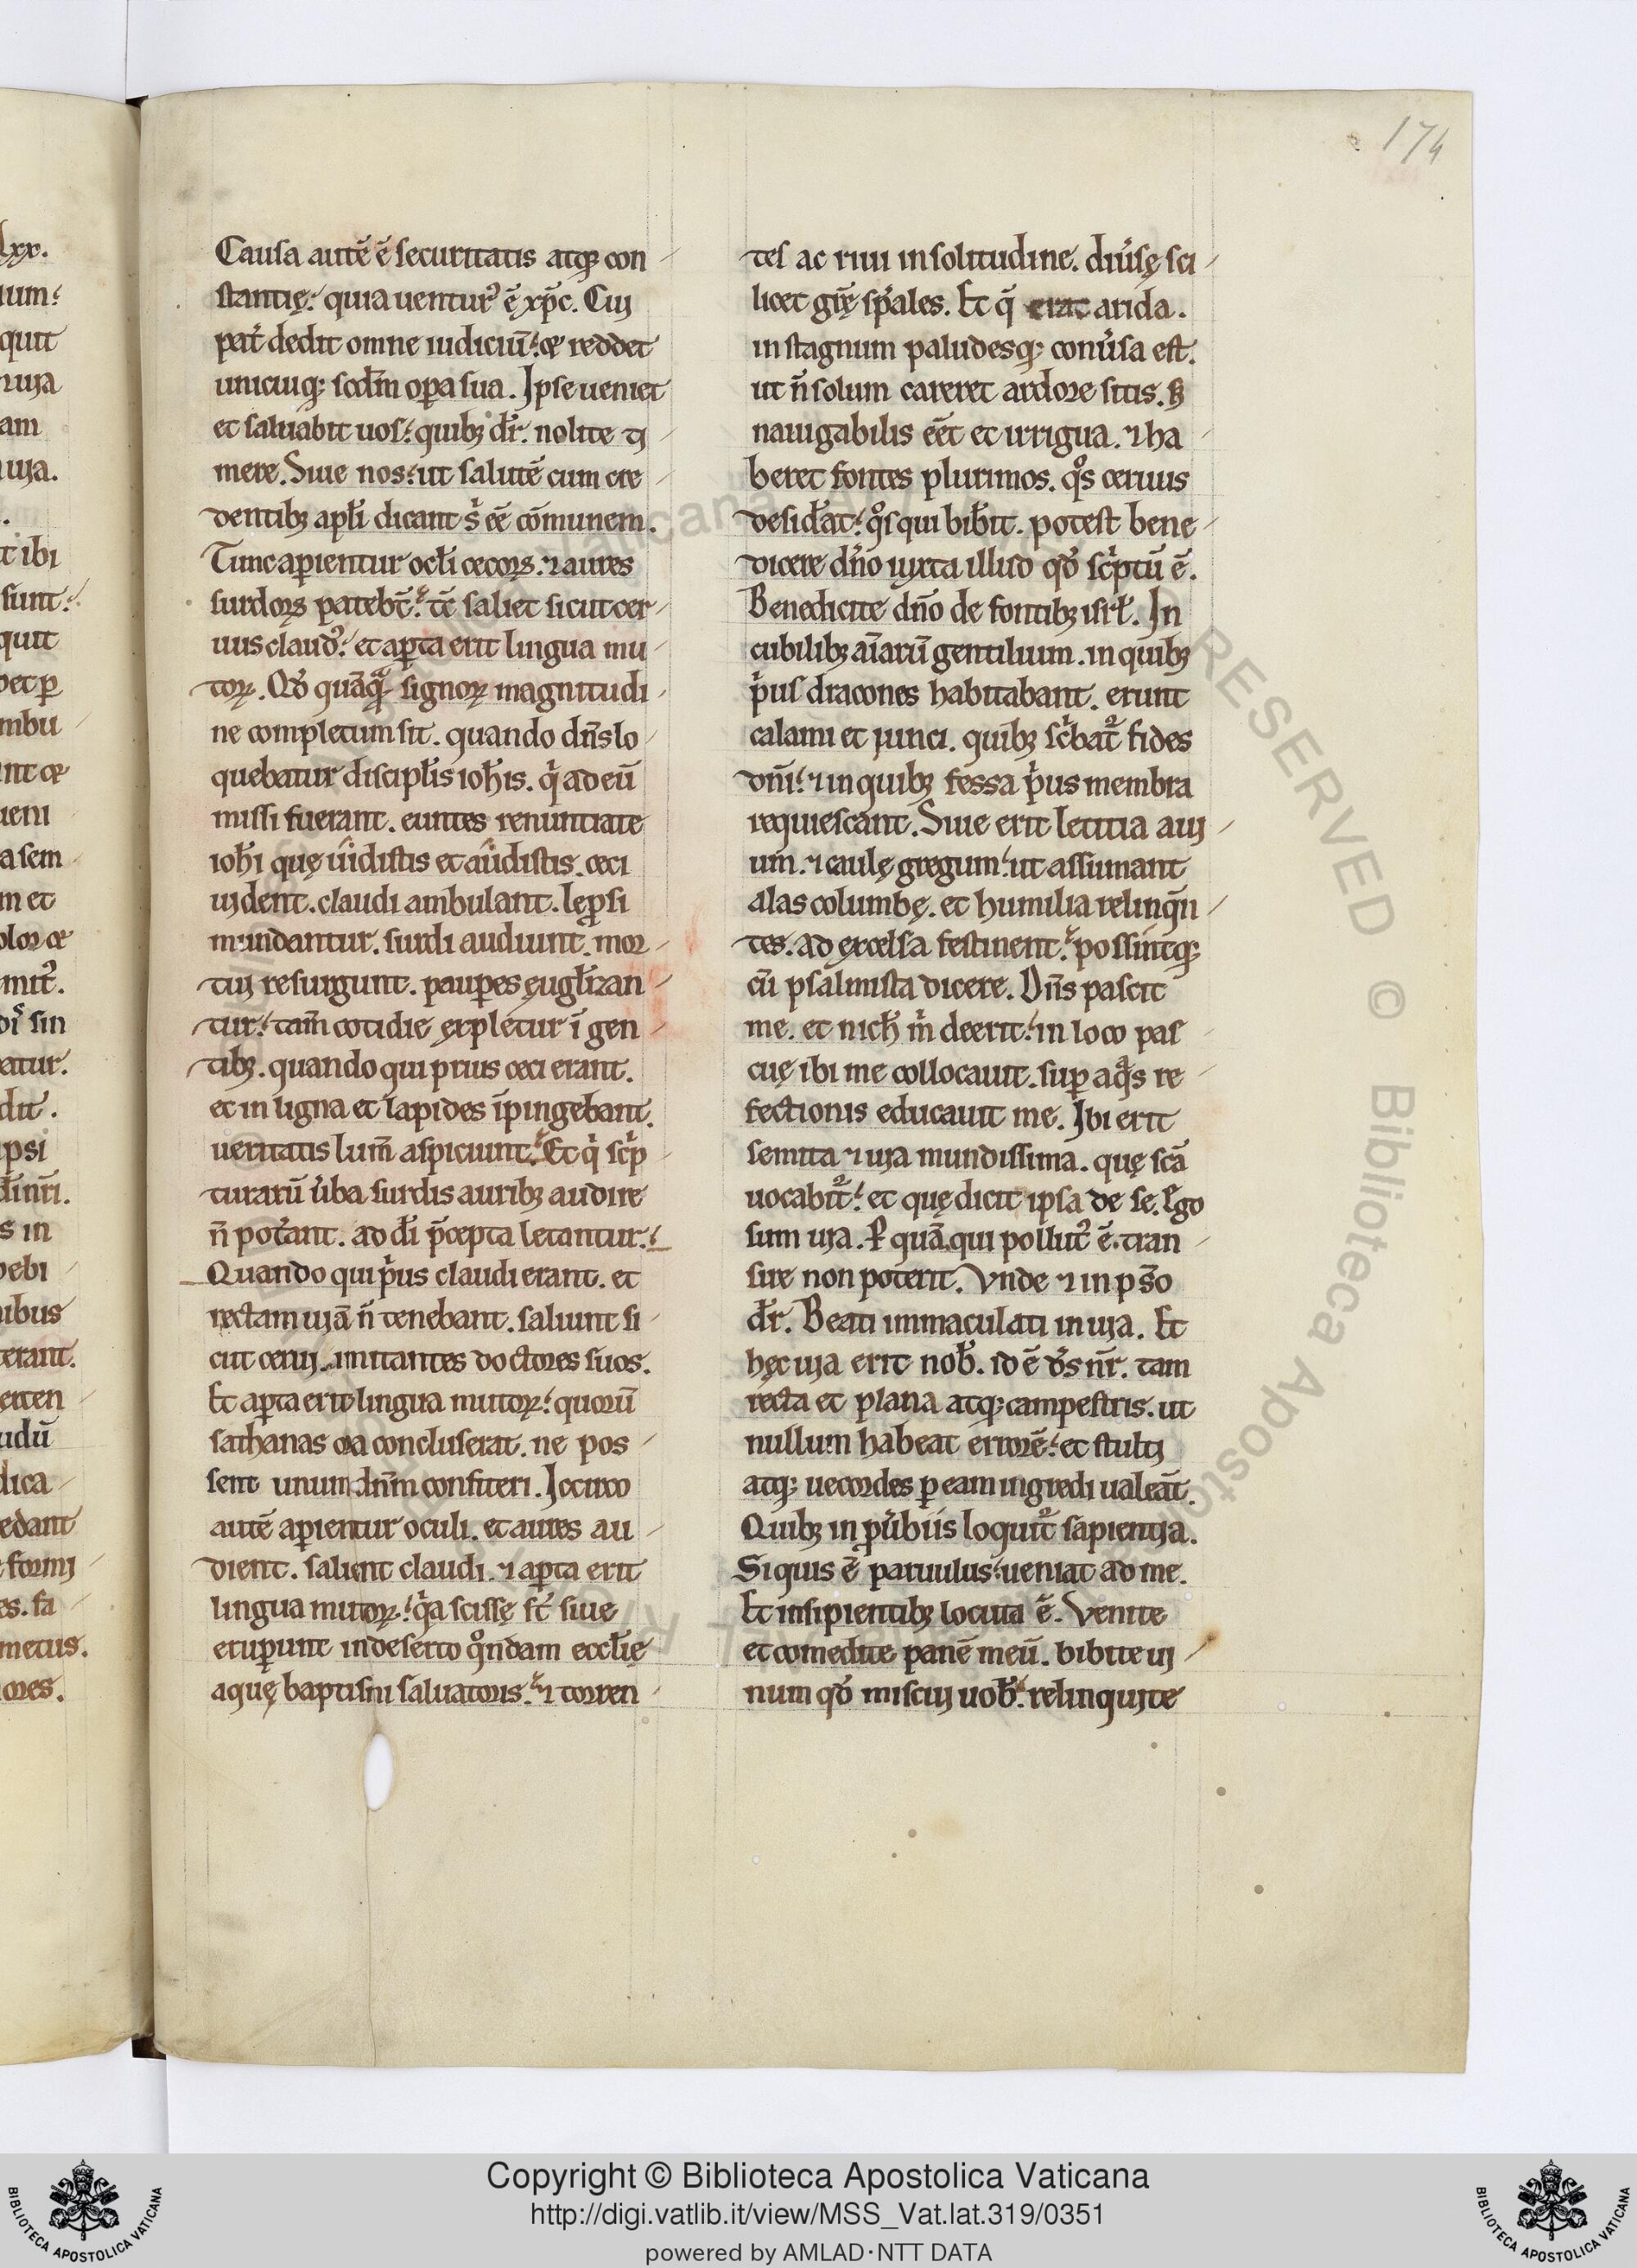 174
Causa autē ē securitatis atq; con
stantię. quia uentur᷒ ē xp̄c. Cui
pat̓ dedit omne iudiciū. et reddet
unicuiq; scd̄m op̱a sua. Ipse ueniet
et saluabit uos. quibꝫ dr̄. nolite ti
mere. Siue nos. ut salutē cum cre
dentibꝫ apl̄i dicant s̓ eē cōmunem.
Tunc aperientur ocl̄i cecoꝝ. ⁊ aures
surdoꝝ patebt̄. tc̄ saliet sicut cer
uus claud᷒. et aꝑta erit lingua mu
toꝝ. Qd̓ quāqͣ signoꝝ magnitudi
ne completum sit. quando dn̄s lo
quebatur discipl̄is ioh̄is. q̓ ad eū
missi fuerant. euntes renuntiate
ioh̄i quę uidistis et audistis. ceci
uident. claudi ambulant. lep̱si
mundantur. surdi audiunt. mor
tui resurgunt. pauꝑes ęugl̄izan
tur. tam̄ cotidie expletur ī gen
tibꝫ. quando qui prius ceci erant.
et in ligna et lapides īpingebant.
ueritatis lum̄ aspiciunt. Et q̓ sc̓p
turarū ůba surdis auribꝫ audire
n̄ pot̓ant. ad dī p̄cepta letantur.
Quando qui p̓us claudi erant. et
rectam uiā n̄ tenebant. saliunt si
cut cerui. imitantes doctores suos.
Et aꝑta erit lingua mutoꝝ. quorū
sathanas ora concluserat. ne pos
sent unum dn̄m confiteri. Iccirco
autē aꝑientur oculi. et aures au
dient. salient claudi. ⁊ aꝑta erit
lingua mutoꝝ. q̓a scissę st̄ siue
eruꝑunt in deserto qͦndam eccl̄ię
aquę baptismi saluatoris. ⁊ torren
tes ac riui in solitudine. diůsę sci
licet gr̄ę sp̄ales. Et q̄ erat arida.
in stagnum paludesq; conůsa est.
ut n̄ solum careret ardore sitis. sꝫ
nauigabilis eēt et irrigua. ⁊ ha
beret fontes plurimos. qͦs ceruus
desid̓at. qͦs qui bib̓it. potest bene
dicere dn̄o iuxta illud qd̓ sc̓ptū ē.
Benedicite dn̄o de fontibꝫ isrl̄. In
cubilibꝫ aīarū gentilium. in quibꝫ
p̓us dracones habitabant. erunt
calami et iunci. quibꝫ sc̓bat᷑ fides
dn̄i. ⁊ in quibꝫ fessa p̓us membra
requiescant. Siue erit letitia aui
um. ⁊ caulę gregum. ut assumant
alas columbę. et humilia relinqūn
tes. ad excelsa festinent. possintq;
cū psalmista dicere. Dn̄s pascit
me. et nich̓ m̓ deerit. in loco pas
cuę ibi me collocauit. suꝑ aqͣs re
fectionis educauit me. Ibi erit
semita ⁊ uia mundissima. quę scā
uocabit᷑. et quę dicit ipsa de se. Ego
sum uia. ꝑ quā qui pollut᷒ ē. tran
sire non poterit. Vnde ⁊ in ps̄o
dr̄. Beati immaculati in uia. Et
hęc uia erit nob̓. id ē ds̄ nr̄. tam
recta et plana atq; campestris. ut
nullum habeat errorē. et stulti
atq; uecordes ꝑ eam ingredi ualeāt.
Quibꝫ in ꝓůbiis loquit᷑ sapientia.
Si quis ē paruulus. ueniat ad me.
Et insipientibꝫ locuta ē. Venite
et comedite panē meū. bibite ui
num qd̓ miscui uob̓. relinquite
Copyright © Biblioteca Apostolica Vaticana
http://digi.vatlib.it/view/MSS_Vat.lat.319/0351
powered by AMLAD·NTT DATA